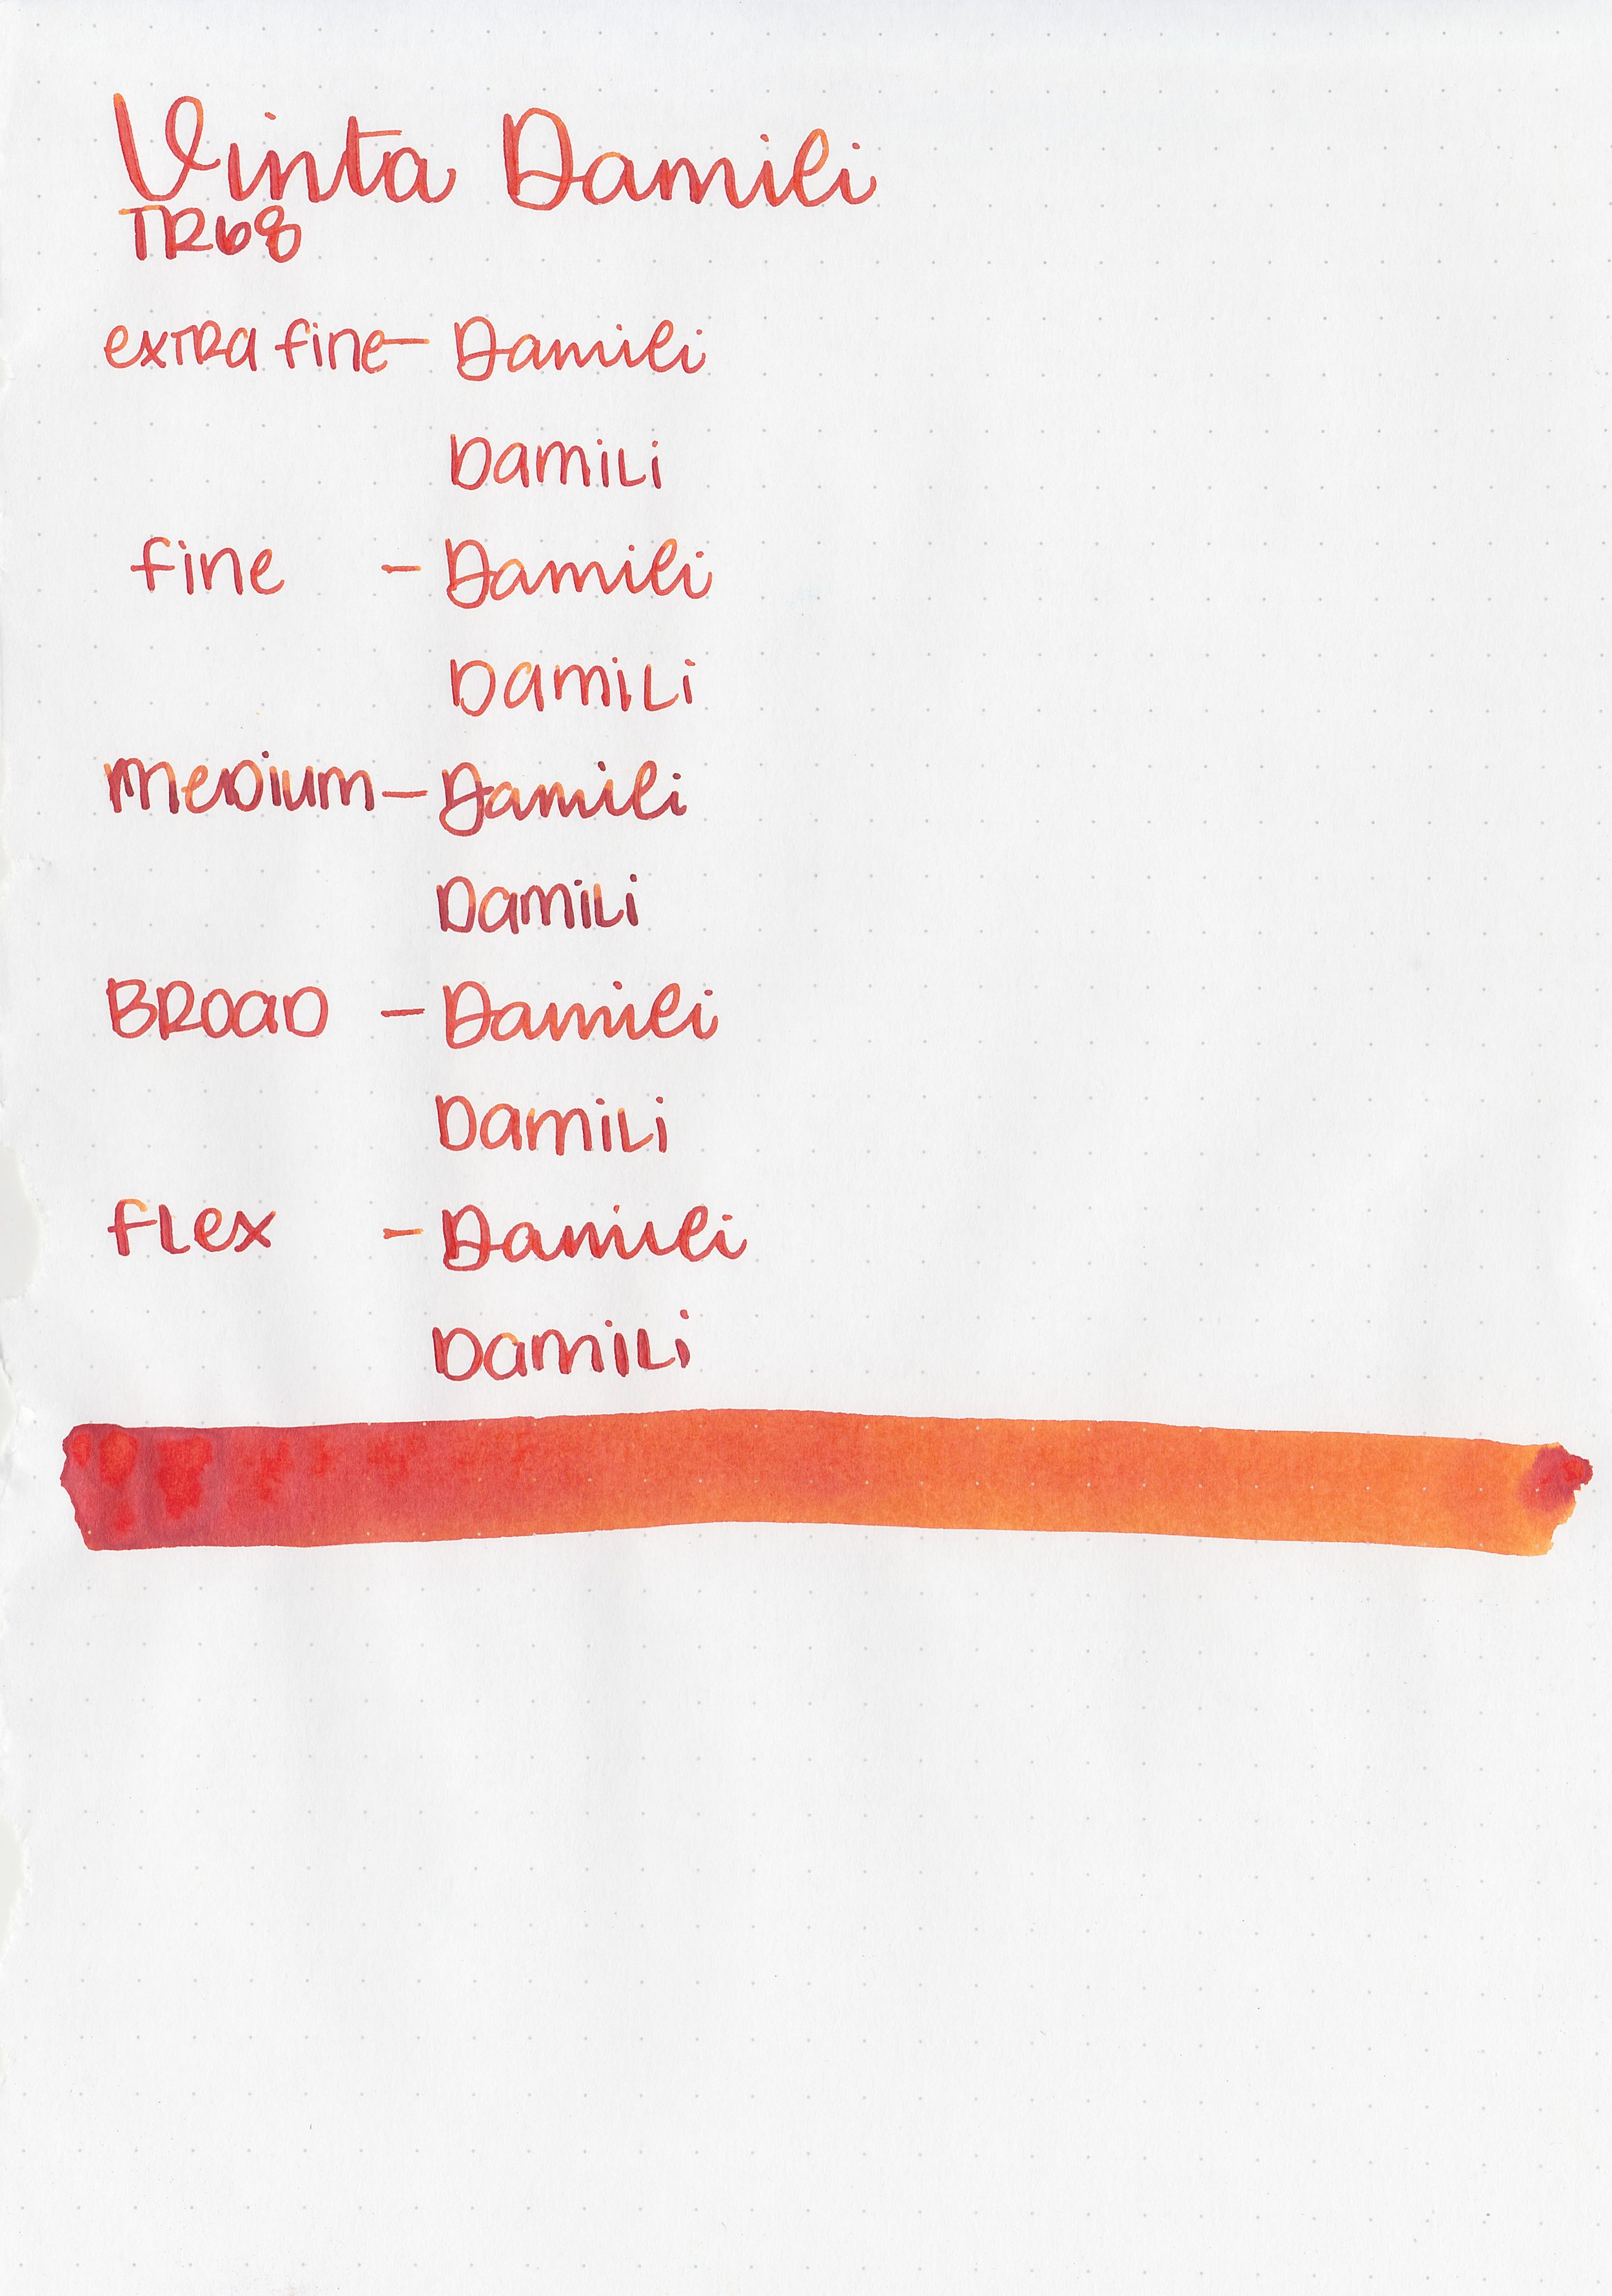 Vinta Damili
TR68
extra fine - Damili
Damili
fine - Damili
Damili
medium - Damili
Damili
Broad - Damili
Damili
flex - Damili
Damili